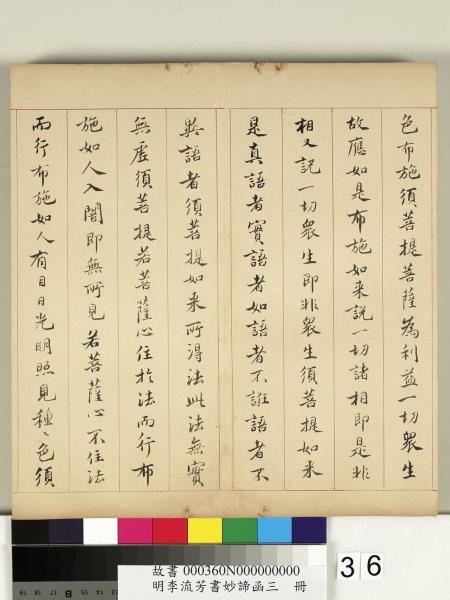 色布施須菩提菩薩為利益一切衆生
故應如是布施如来說一切諸相即是非
相又說一切衆生即非衆生須菩提如来
是真語者實語者如語者不誑語者不
異語者須菩提如来所得法此法無實
無虛須菩提若菩薩心住於法而行布
施如人入闇即無所見若菩薩心不住法
而行布施如人有目日光明照見種〻色須
故書 000360N000000000
明李流芳書妙諦函三 冊
36